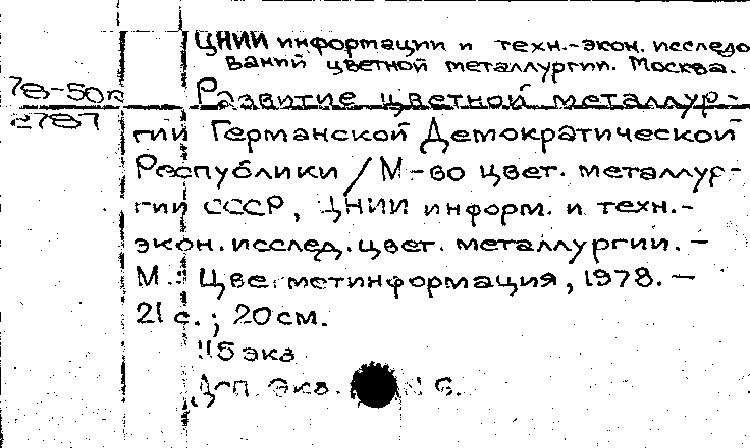 ЦНИИ информации и техн.-экон. исследо
ваний цветной металлургии. Москва.
78-50п
2787
Развитие цветной металлур-
гии Германской Демократической
Республики / М-во цвет. металлур-
гии СССР, ЦНИИ информ. и техн.-
экон. исслед. цвет. металлургии. -
М.: Цветметинформация, 1978. -
21 с.; 20 см.
115 экз
экз.